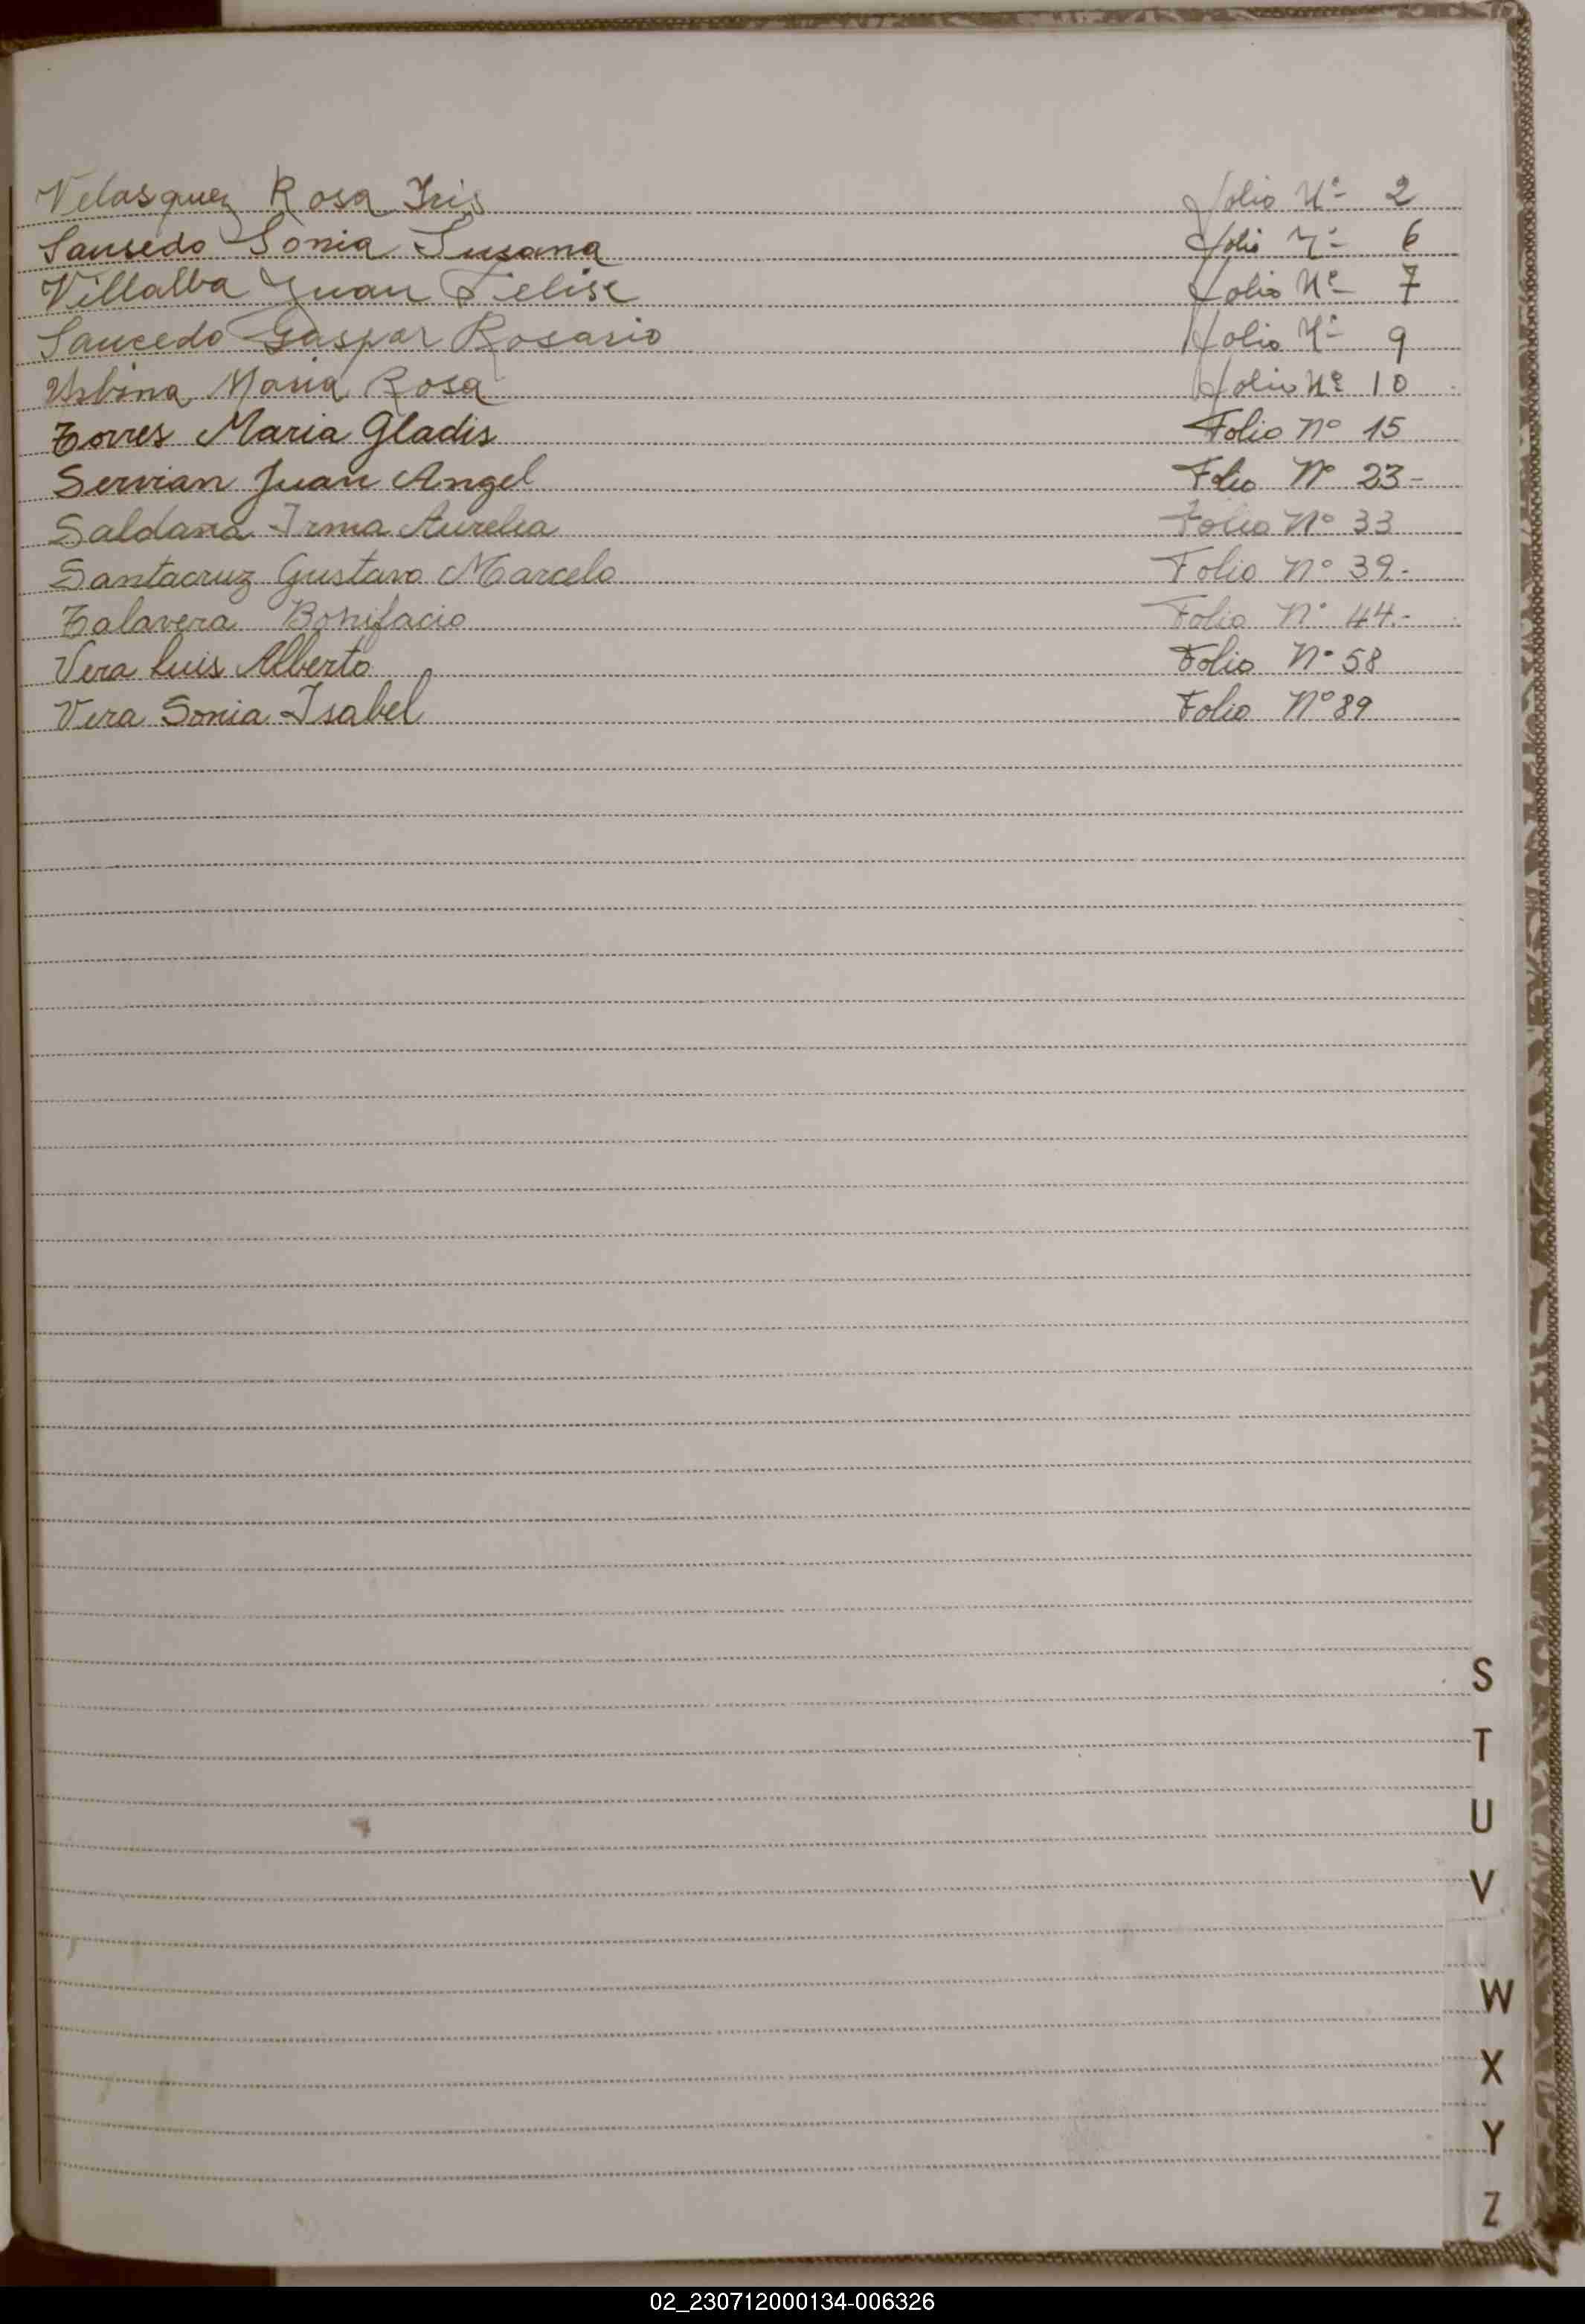 Velasquez Rosa Iris Folio Nº 2
Sausedo Sonia Susana Folio Nº 6
Villalba Juan Felise Folio Nº 7
Saucedo Gaspar Rosario Folio Nº 9
Urbina Maria Rosa Folio Nº 10
Torres Maria Gladis Folio Nº 15
Servian Juan Angel Folio Nº 23-
Saldana Irma Aurelia Folio Nº 33
Santacruz Gustavo Marcelo Folio Nº 39.-
Talavera Bonifacio Folio Nº 44.-
Vera Luis Alberto Folio Nº 58
Vera Sonia Isabel Folio Nº 89
S
T
U
V
W
X
Y
Z
02_230712000134-006326